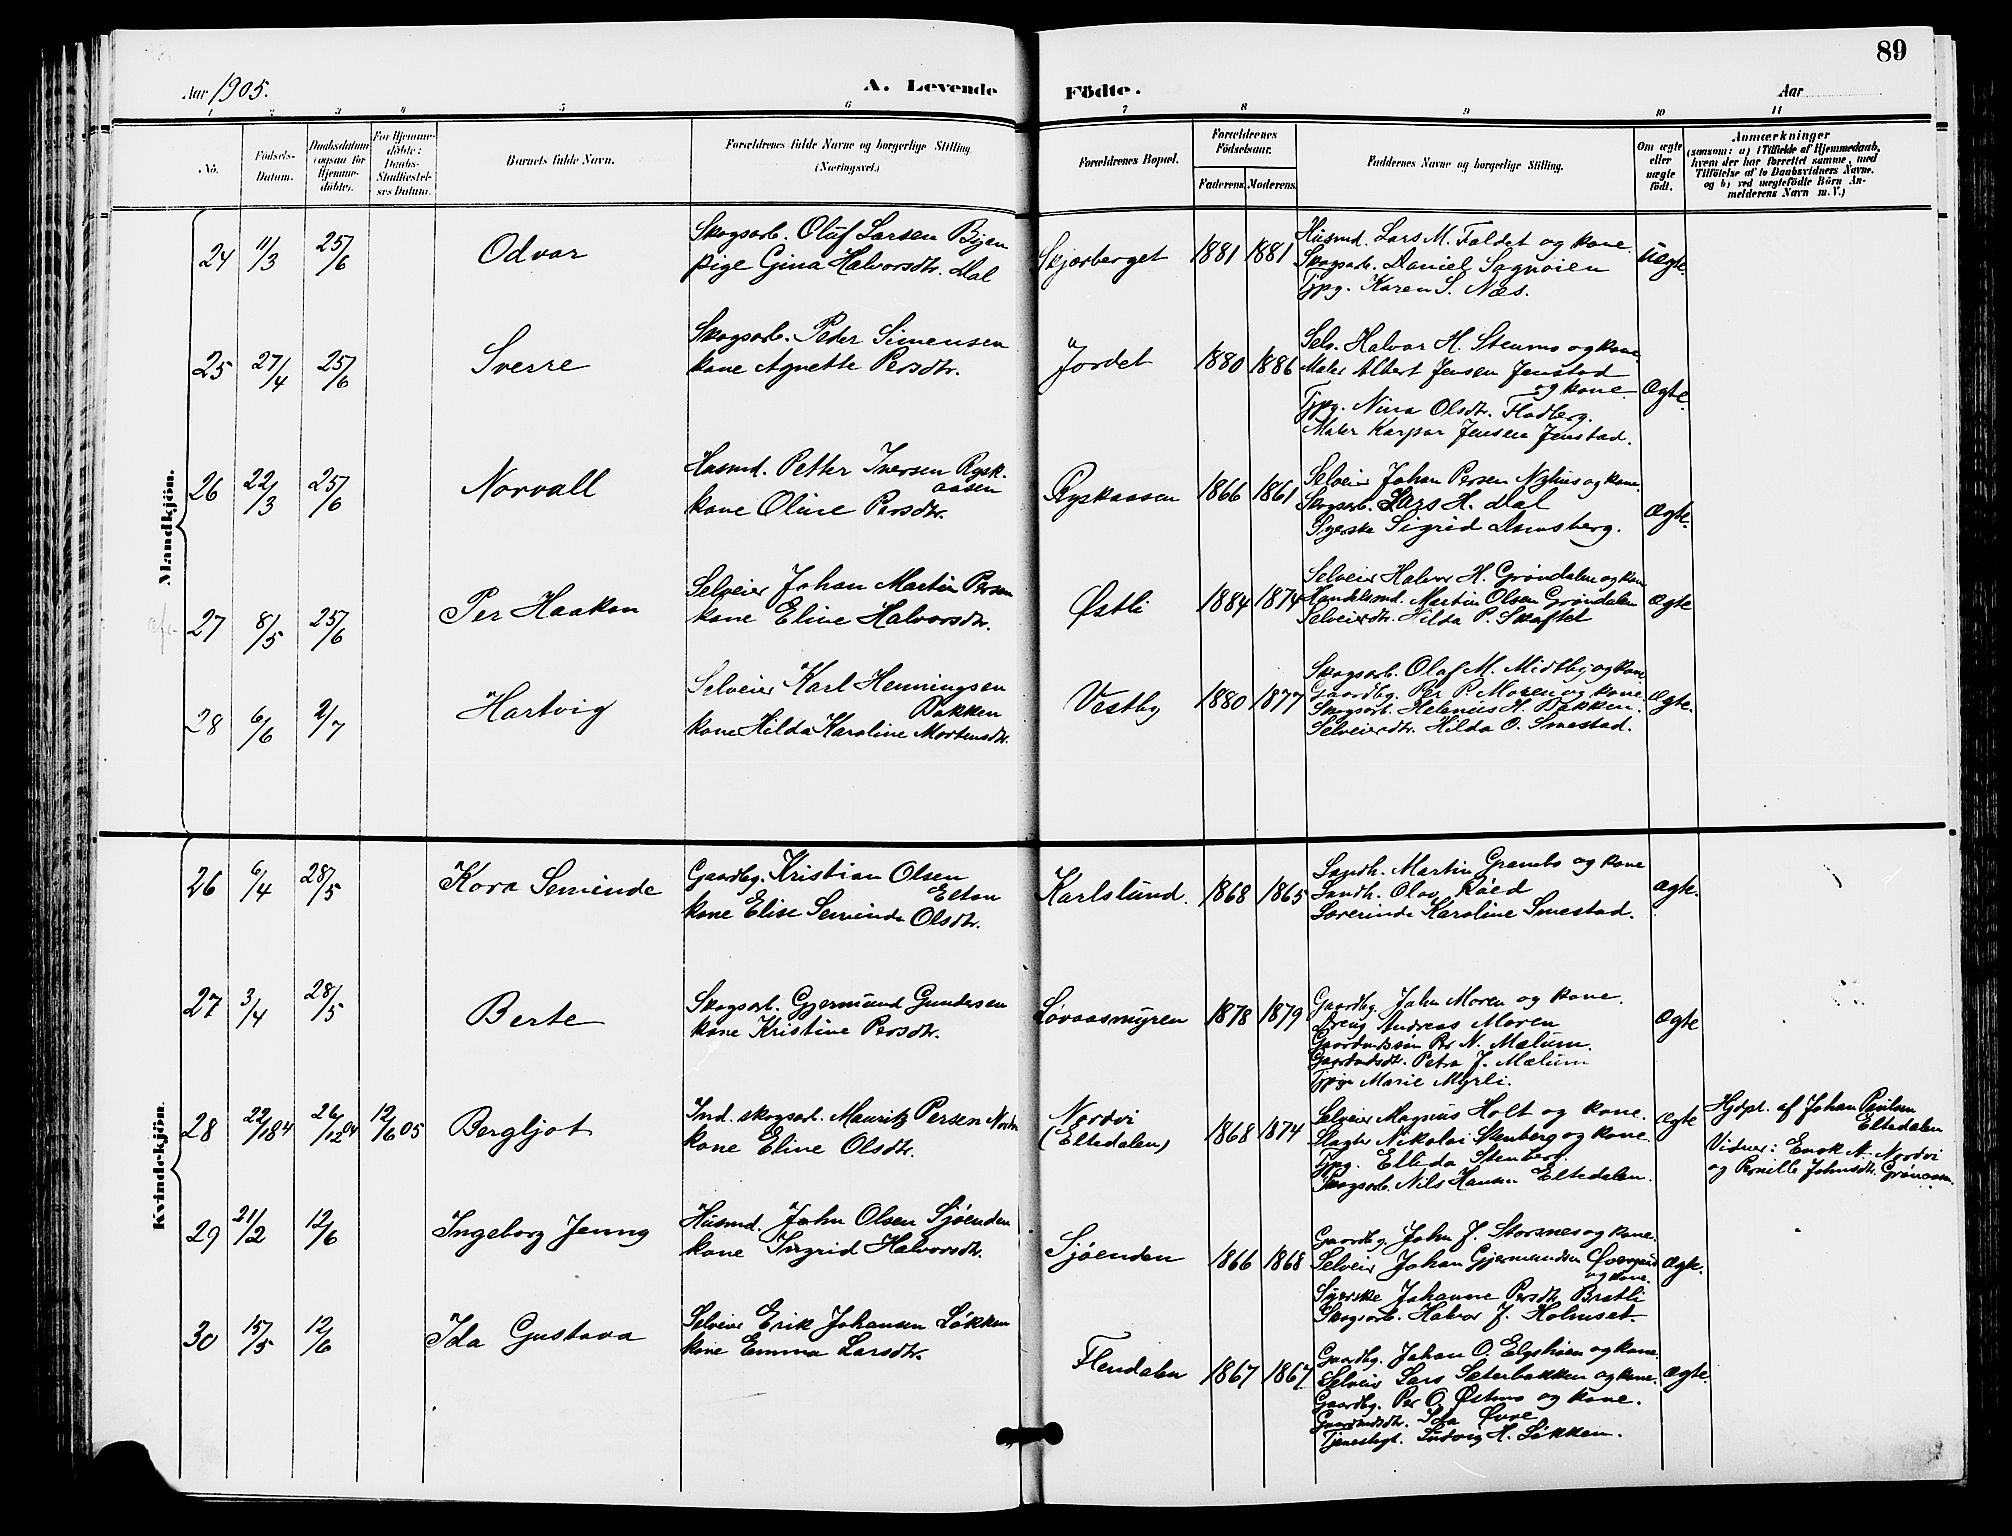 89
Aar 1905.
A. Levende
Födte.
Aar
1 2 3 4 5 6 7 8 9 10 11
No.
Födsels-
Datum.
Daabsdatum
(ogsaa for
Hjemme-
döbte).
For Hjemme-
döbte:
Daabs-
Stadfæstel-
ses Datum.
Barnets fulde Navn.
Forældrenes fulde Navne og borgerlige Stilling
(Næringsvei.)
Forældrenes Bopæl.
Forældrenes
Födselsaar.
Faderens. Moderens.
Faddernes Navne og borgerlige Stilling.
Om ægte
eller
uægte
födt.
Anmærkninger
(saasom: a) i Tilfælde af Hjemmedaab,
hvem der har forrettet samme, med
Tilföielse af to Daabsvidners Navne.
og b) ved uægtefödte Börn An-
melderens Navn m. V.)
Mandkjön.
24 11/3 25/6 Odvar
Skogsarb. Oluf Larsen Bjen
pige Gina Halvorsdtr. Dal
Skjærberget 1881 1881
Husmd. Lars M. Faldet og kone
Skogsarb. Daniel Sagnoien
Tjpg. Karen S. Næs.
Uægte.
25 27/4 25/6 Sverre
Skogsarb. Peder Simensen
kone Agnette Persdtr.
Jordet 1880 1886
Selv. Halvor H. Stenmo og kone
Maler Albert Jensen Jenstad
og kone
Tjpg. Nina Olsdtr. Flodberg.
Maler Kaspar Jensen Jenstad.
Ægte.
26 22/3 25/6 Norvall
Husmd. Petter Iversen Rysk-
aasen
kone Oline Persdtr.
Ryskaasen 1866 1861
Selveier Johan Persen Nyhus og kone.
Skogsarb. Lars H. Dal
Syerske Sigrid Damsberg.
Ægte.
27 8/5 25/6 Per Haakon
Selveier Johan Martin Persen
kone Eline Halvorsdtr.
Østli 1884 1874
Selveier Halvor H. Grøndalen og kone
Handelsmd. Martin Olsen Grøndalen
Selveierdtr. Hilda P. Skaftet
Ægte
28 6/6 2/7 Hartvig
Selveier Karl Henningsen
Bakken
kone Hilda Karoline Mortensdtr.
Vestby 1880 1877
Skogsarb. Olaf M. Midtby og kone
Gaardbg. Per P. Mosen og kone
Skogsarb. Helenius H. Bakken.
Selveierdtr. Hilda O. Smestad.
Ægte.
Kvindekjön.
26 6/4 28/5 Kora Seminde
Gaardbg. Kristian Olsen
Elton
kone Elise Seminda Olsdtr.
Karlslund. 1868 1865
Landh. Martin Grambo og kone
Landh. Olav Røed
Lærerinde Karoline Smestad.
ægte.
27 3/4 28/5 Berte
Skogsarb. Gjermund Gundersen
kone Kristine Persdtr.
Lovaasmyren 1878 1879
Gaardbg. John Moren og kone.
Dreng Andreas Moren
Gaardmdssøn Per N. Mælum.
Gaardmdsdtr. Petra J. Mælum
Tjpige Marie Myrli.
Ægte
28 22/10 04 26/12 04 12/6 05 Bergljot
Ind. skogsarb. Mauritz Persen Nordvi
kone Eline Olsdtr.
Nordvi
(Eltedalen) 1868 1874
Selveier Magnus Holt og kone.
Slagter Nikolai Stenberg og kone
Tjpg. Ellida Stenberg
Skogsarb. Nils Hansen Eltedalen.
Ægte
Hjdøpt. af Johan Paulsen
Eltedalen
Vidner: Enok A. Nordvi
og Pernille Johnsdtr. Grønoen.
29 21/2 12/6 Ingeborg Jenny
Husmd. John Olsen Sjøenden
kone Ingrid Halvorsdtr.
Sjøenden 1866 1868
Gaardbg. John J. Storsnes og kone.
Selveier Johan Gjermundsen Øvergaard
og kone.
Syerske Johanne Persdtr. Bratli
Skogsarb. Halvor J. Holmset.
Ægte.
30 15/5 12/6 Ida Gustava
Selveier Erik Johansen Løkken
kone Emma Larsdtr.
Flendalen 1867 1867
Gaardbg. Johan O. Elgshøen og kone.
Selveier Lars Sæterbakken og kone.
Gaardbg. Per O. Østmo og kone.
Gaardmdsdtr. Ida Øvre
Tjenestegt. Ludvig H. Løkken.
Ægte.